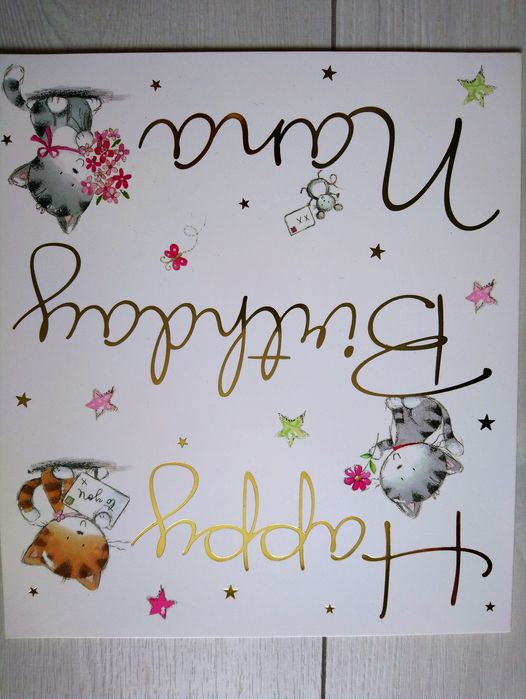 Happy
to you
x
Birthday
xx
Nana